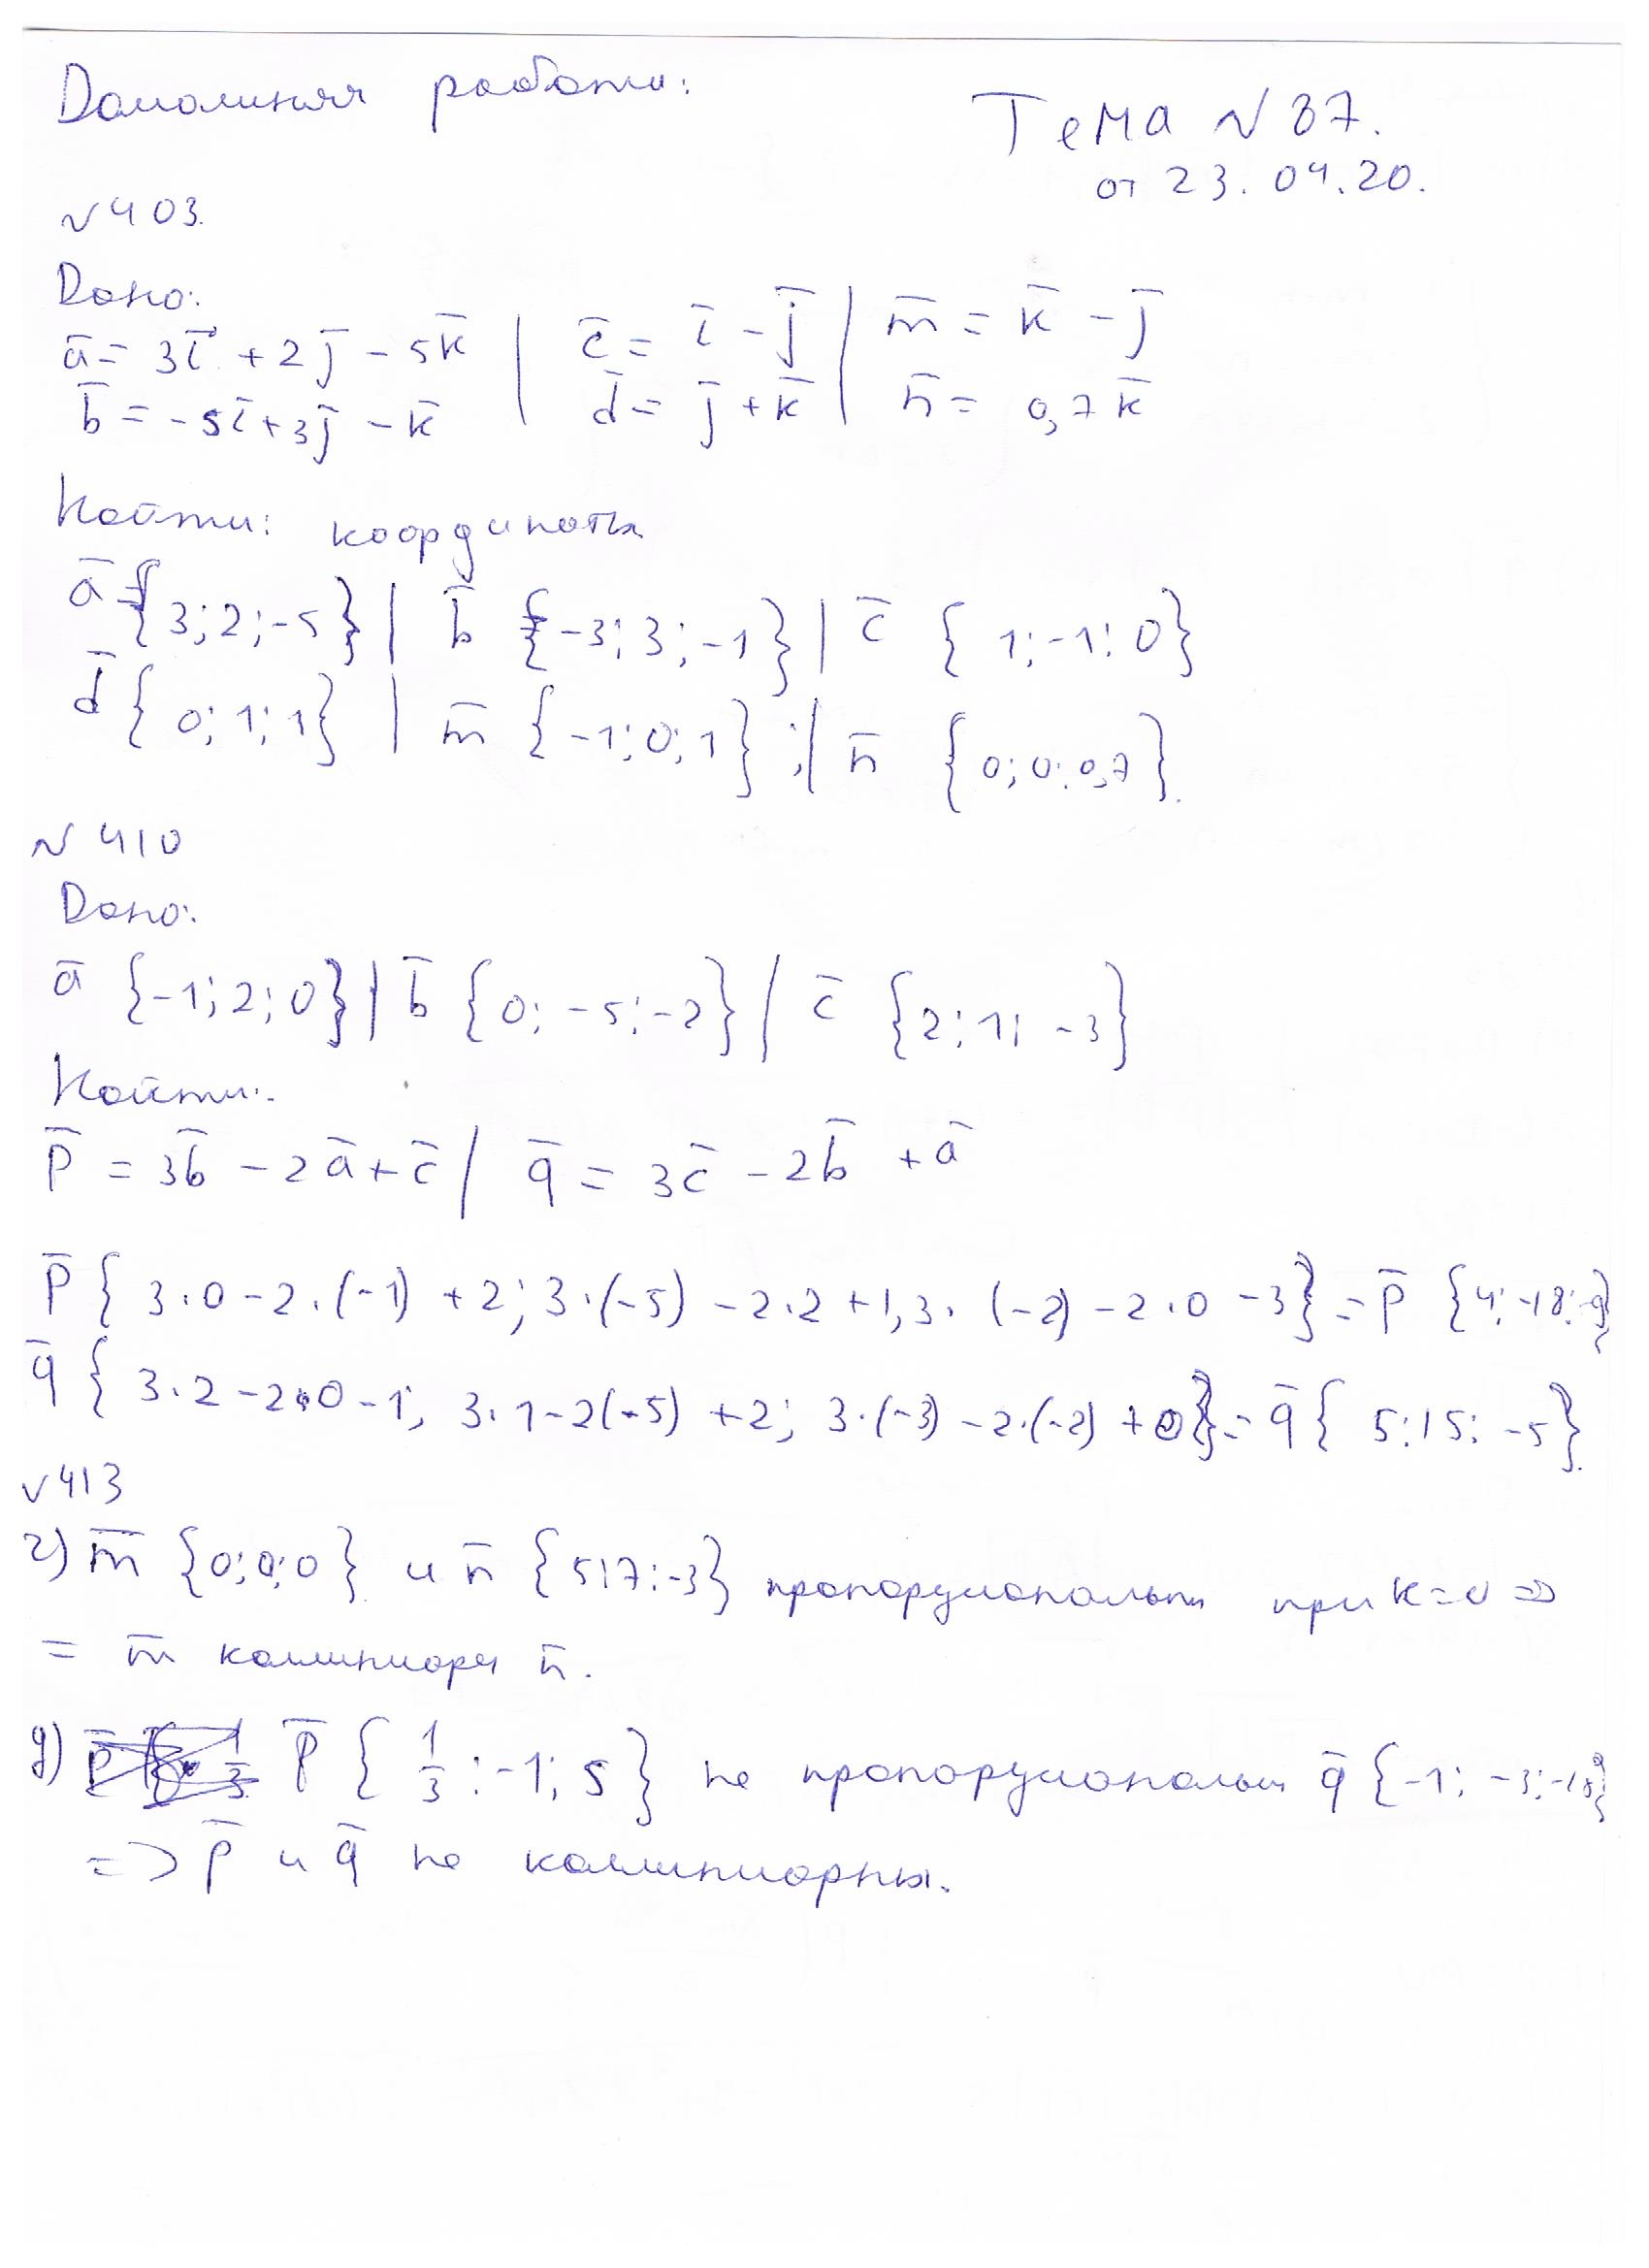 Домашняя работа:
Тема № 37.
от 23.04.20.
№ 403.
Дано:
a̅ = 3i̅ + 2j̅ - 5k̅ | c̅ = i̅ - j̅ | m̅ = k̅ - j̅
b̅ = -5i̅ + 3j̅ - k̅ | d̅ = j̅ + k̅ | n̅ = 0,7k̅
Найти: координаты
a̅ = {3; 2; -5} | b̅ {-3; 3; -1} | c̅ {1; -1; 0}
d̅ {0; 1; 1} | m̅ {-1; 0; 1}; | n̅ {0; 0; 0,7}.
№ 410
Дано:
a̅ {-1; 2; 0} | b̅ {0; -5; -2} | c̅ {2; 1; -3}
Найти:
p̅ = 3b̅ - 2a̅ + c̅ | q̅ = 3c̅ - 2b̅ + a̅
p̅ {3·0 - 2·(-1) + 2; 3·(-5) - 2·2 + 1, 3·(-2) - 2·0 - 3} = p̅ {4; -18; -9}
q̅ {3·2 - 2·0 - 1; 3·1 - 2(-5) + 2; 3·(-3) - 2·(-2) + 0} = q̅ {5; 15; -5}.
№ 413
г) m̅ {0; 0; 0} и n̅ {5; 7; -3} пропорциональны при k = 0 =>
= m̅ коллинеарен n̅.
д) p̅ {1/3; -1; 5} не пропорциональны q̅ {-1; -3; -15}
=> p̅ и q̅ не коллинеарны.